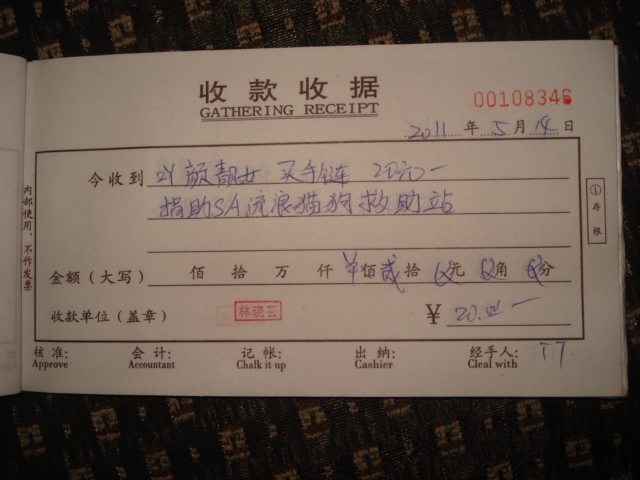 收款收据
GATHERING RECEIPT
00108346
2011 年 5 月 14 日
今收到 21 颜靓女 买手链 20元一
捐助SA流浪猫狗救助站
金额（大写） 佰 拾 万 仟 ¥佰 贰拾 0元 0角 0分
收款单位（盖章） 林晓芸 ¥ 20.00一
核准: 会计: 记帐: 出纳: 经手人:
Approve Accountant Chalk it up Cashier Cleal with
内部使用，不作发票
①存根